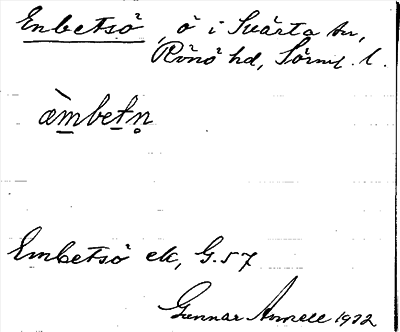 Enbetsö, ö i Svärta sn,
Rönö hd, Sörml. l.
æ̀mbetn̥
Embetsö ek, G. 57
Gunnar Annell 1932